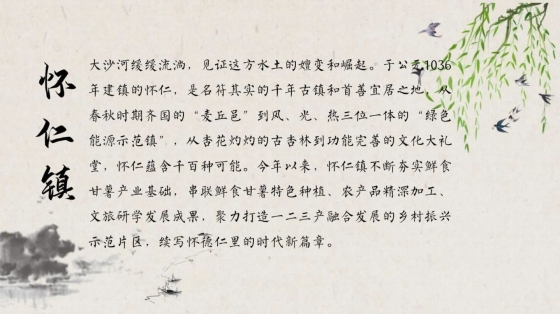 怀仁镇
大沙河缓缓流淌，见证这方水土的嬗变和崛起。于公元1036
年建镇的怀仁，是名符其实的千年古镇和首善宜居之地，从
春秋时期齐国的“麦丘邑”到风、光、热三位一体的“绿色
能源示范镇”，从杏花灼灼的古杏林到功能完善的文化大礼
堂，怀仁蕴含千百种可能。今年以来，怀仁镇不断夯实鲜食
甘薯产业基础，串联鲜食甘薯特色种植、农产品精深加工、
文旅研学发展成果，聚力打造一二三产融合发展的乡村振兴
示范片区，续写怀德仁里的时代新篇章。